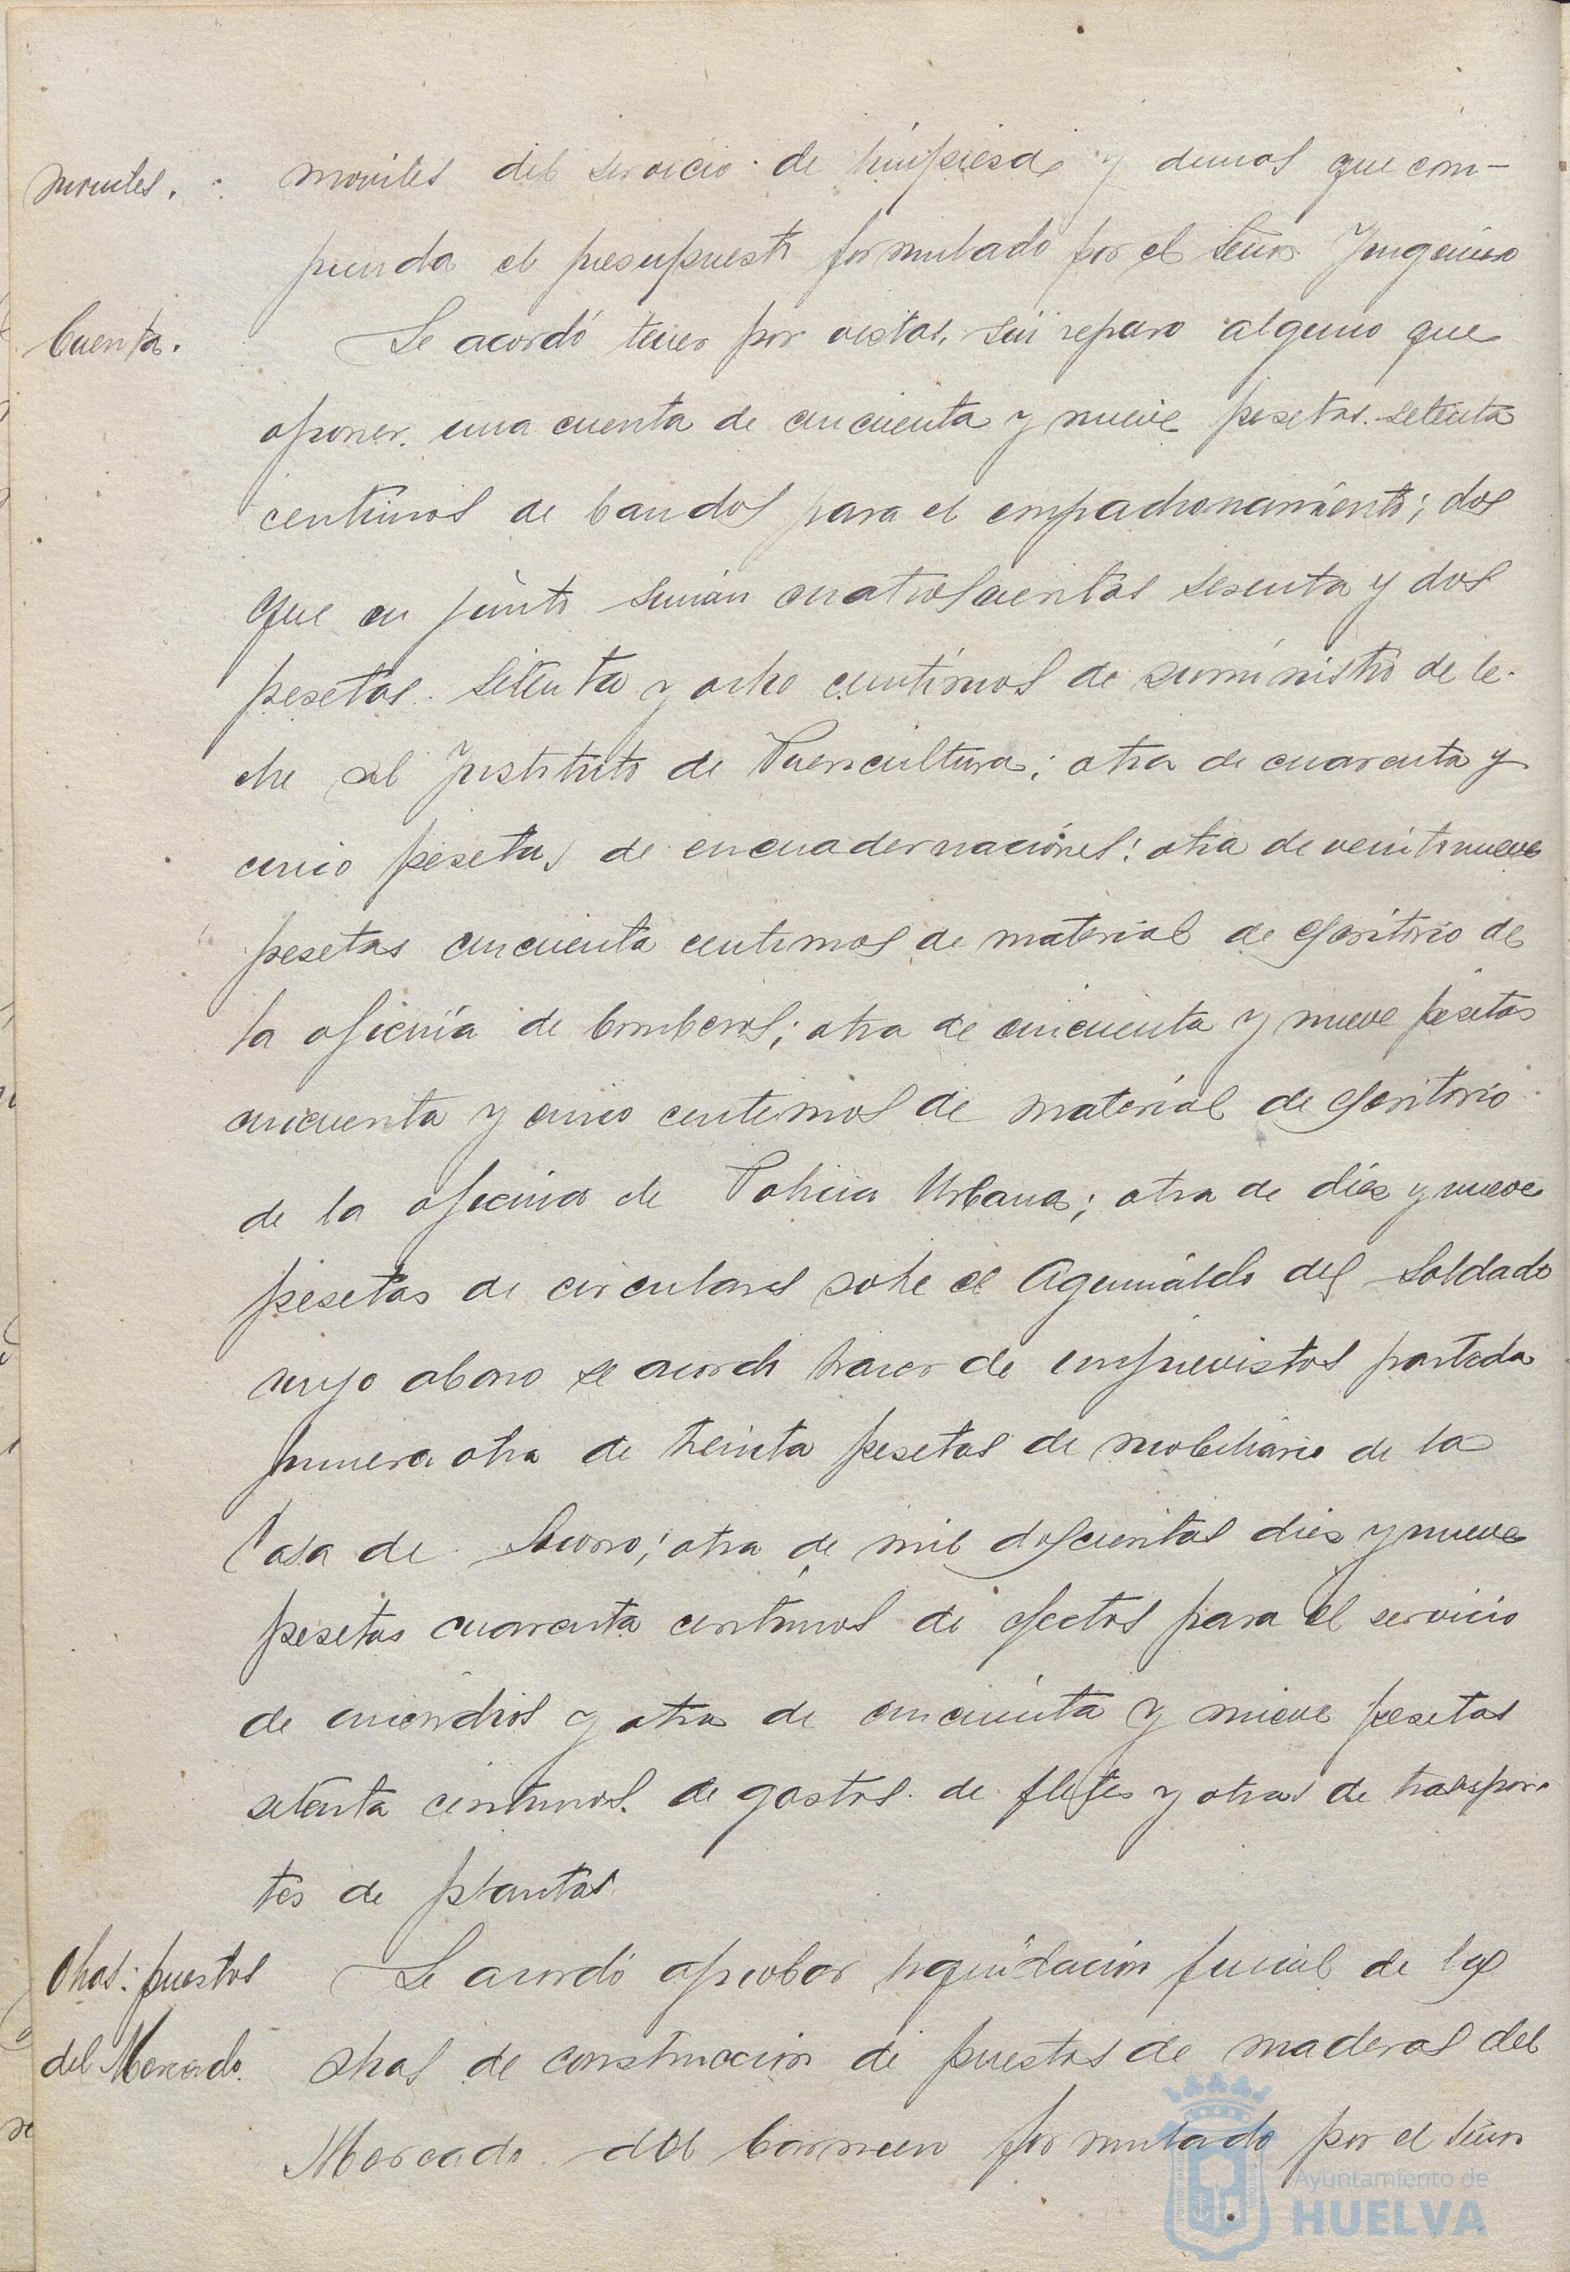 moviles del servicio de limpieza y demas que com-
prenda el presupuesto formulado por el señor Yngeniero
Cuenta. Se acordó tener por vistas, sin reparo alguno que
oponer, una cuenta de cincuenta y nueve pesetas setenta
centimos de bandos para el empadronamiento; dos
que en junto suman cuatroscientas sesenta y dos
pesetas setenta y ocho centimos de suministro de le-
che al Ynstituto de Puericultura; otra de cuarenta y
cinco pesetas de encuadernaciones; otra de veintinueve
pesetas cincuenta centimos de material de escritorio de
la oficina de bomberos; otra de cincuenta y nueve pesetas
cincuenta y cinco centimos de material de escritorio
de la oficina de Policia Urbana; otra de diez y nueve
pesetas de circulares sobre el Aguinaldo del Soldado
cuyo abono se acordó hacer de imprevistos partida
primera otra de treinta pesetas de mobiliario de la
Casa de Socorro; otra de mil doscientas diez y nueve
pesetas cuarenta centimos de efectos para el servicio
de incendios y otra de cincuenta y nueve pesetas
setenta centimos de gastos de fletes y otras de traspor-
tes de plantas
Obras: puestos Se acordó aprobar liquidación final de las
del Mercado. obras de construccion de puestos de maderas del
Mercado del Carmen formulado por el señor
Ayuntamiento de
HUELVA